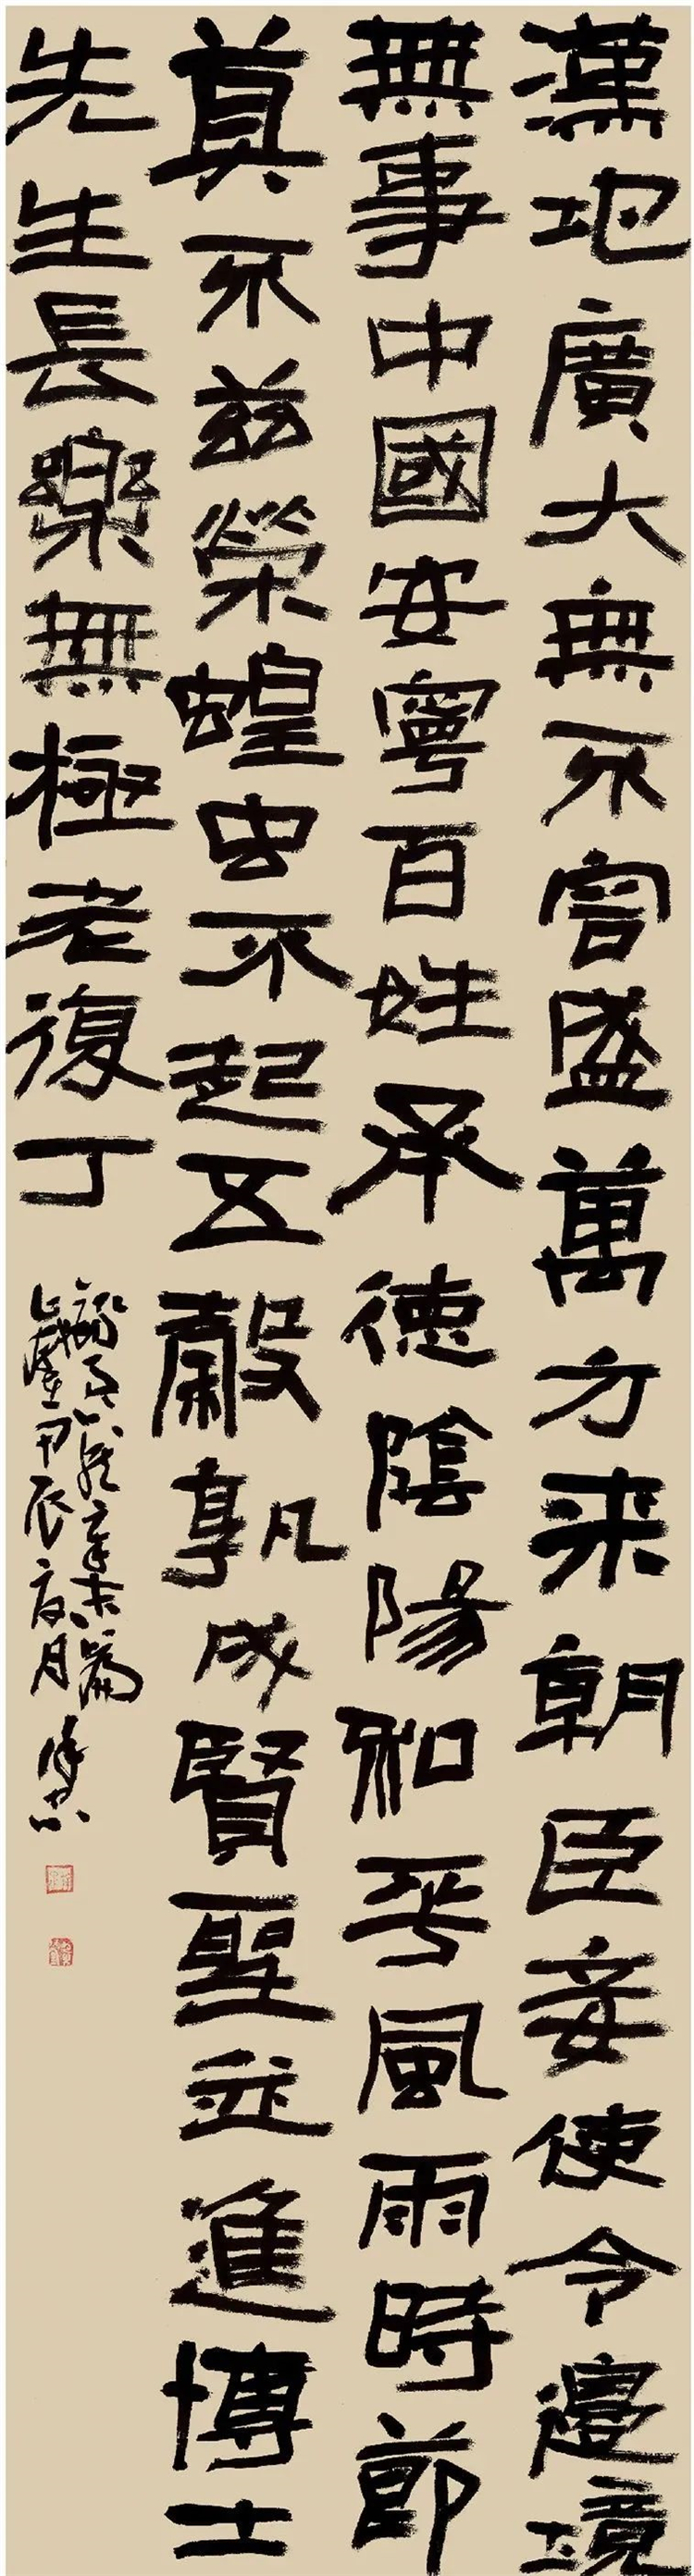 漢地廣大無不容盛萬方来朝臣妾使令邊境
無事中國安寧百姓承德陰陽和平風雨時節
莫不兹榮蝗虫不起五穀孰成賢聖並進博士
先生長樂無極老復丁
甲辰